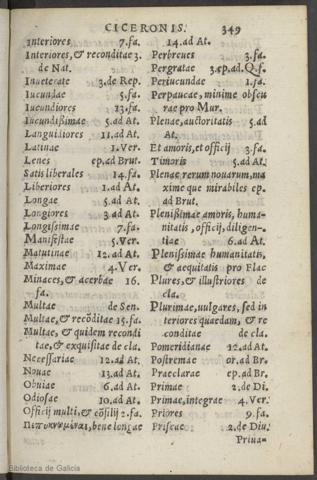 CICERONIS. 349
Interiores 7.fa.
Interiores, & reconditae 3.
de Nat.
Inueterate 3.de Rep.
Iucundae 5.fa.
Iucundiores 13.fa.
Iucundissimae 5.ad At.
Languidiores 11.ad At.
Latinae 1.Ver.
Lenes ep.ad Brut.
Satis liberales 14.fa.
Liberiores 1.ad At.
Longae 5.ad At.
Longiores 3.ad At.
Longissimae 7.fa.
Manifestae 5.Ver.
Matutinae 12.ad At.
Maximae 4.Ver.
Minaces, & acerbae 16.
fa.
Multae de Sen.
Multae, & recōditae 15.fa.
Multae, & quidem recondi
tae, & exquisitae de cla.
Necessariae 12.ad At.
Nouae 13.ad At.
Obuiae 6.ad At.
Odiosae 10.ad At.
Officij multi, & cōsilij 2.fa.
bene longae
14.ad At.
Perbreues 3.fa.
Pergratae 3.ep.ad.Q.f.
Periucundae 1.fa.
Perpaucae, minime obscu
rae pro Mur.
Plenae, auctoritatis 5.ad
At.
Et amoris, et officij 3.fa.
Timoris 5.ad At.
Plenae rerum nouarum, ma
xime que mirabiles ep.
ad Brut.
Plenissimae amoris, huma-
nitatis, officij, diligen-
tiae 6.ad At.
Plenissimae humanitatis,
& aequitatis pro Flac
Plures, & illustriores de
cla.
Plurimae, uulgares, sed in
teriores quaedam, & re
conditae de cla.
Pomeridianae 12.ad At.
Postremae or.ad Br.
Praeclarae ep.ad Br.
Primae 2.de Di.
Primae, integrae 4.Ver.
Priores 9.fa.
Priscae 2.de Diu.
Priua=
Biblioteca de Galicia